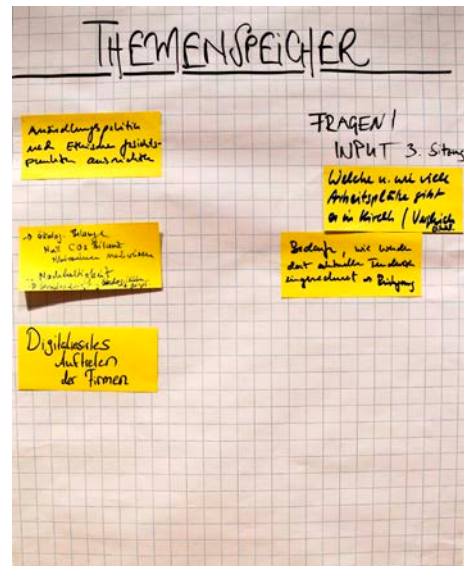 THEMENSPEICHER
Ansiedlungspolitik
nach Ethischen Gesichts-
punkten ausrichten
→ ökolog. Belange
Null CO2 Bilanz
Nachhaltigkeit
Digitales
Auftreten
der Firmen
FRAGEN/
INPUT 3. Sitzung
Welche u. wie viele
Arbeitsplätze gibt
es in Kirch / Vergleich
Bedarfe, wie werden
dort aktuelle Tendenzen
eingerechnet